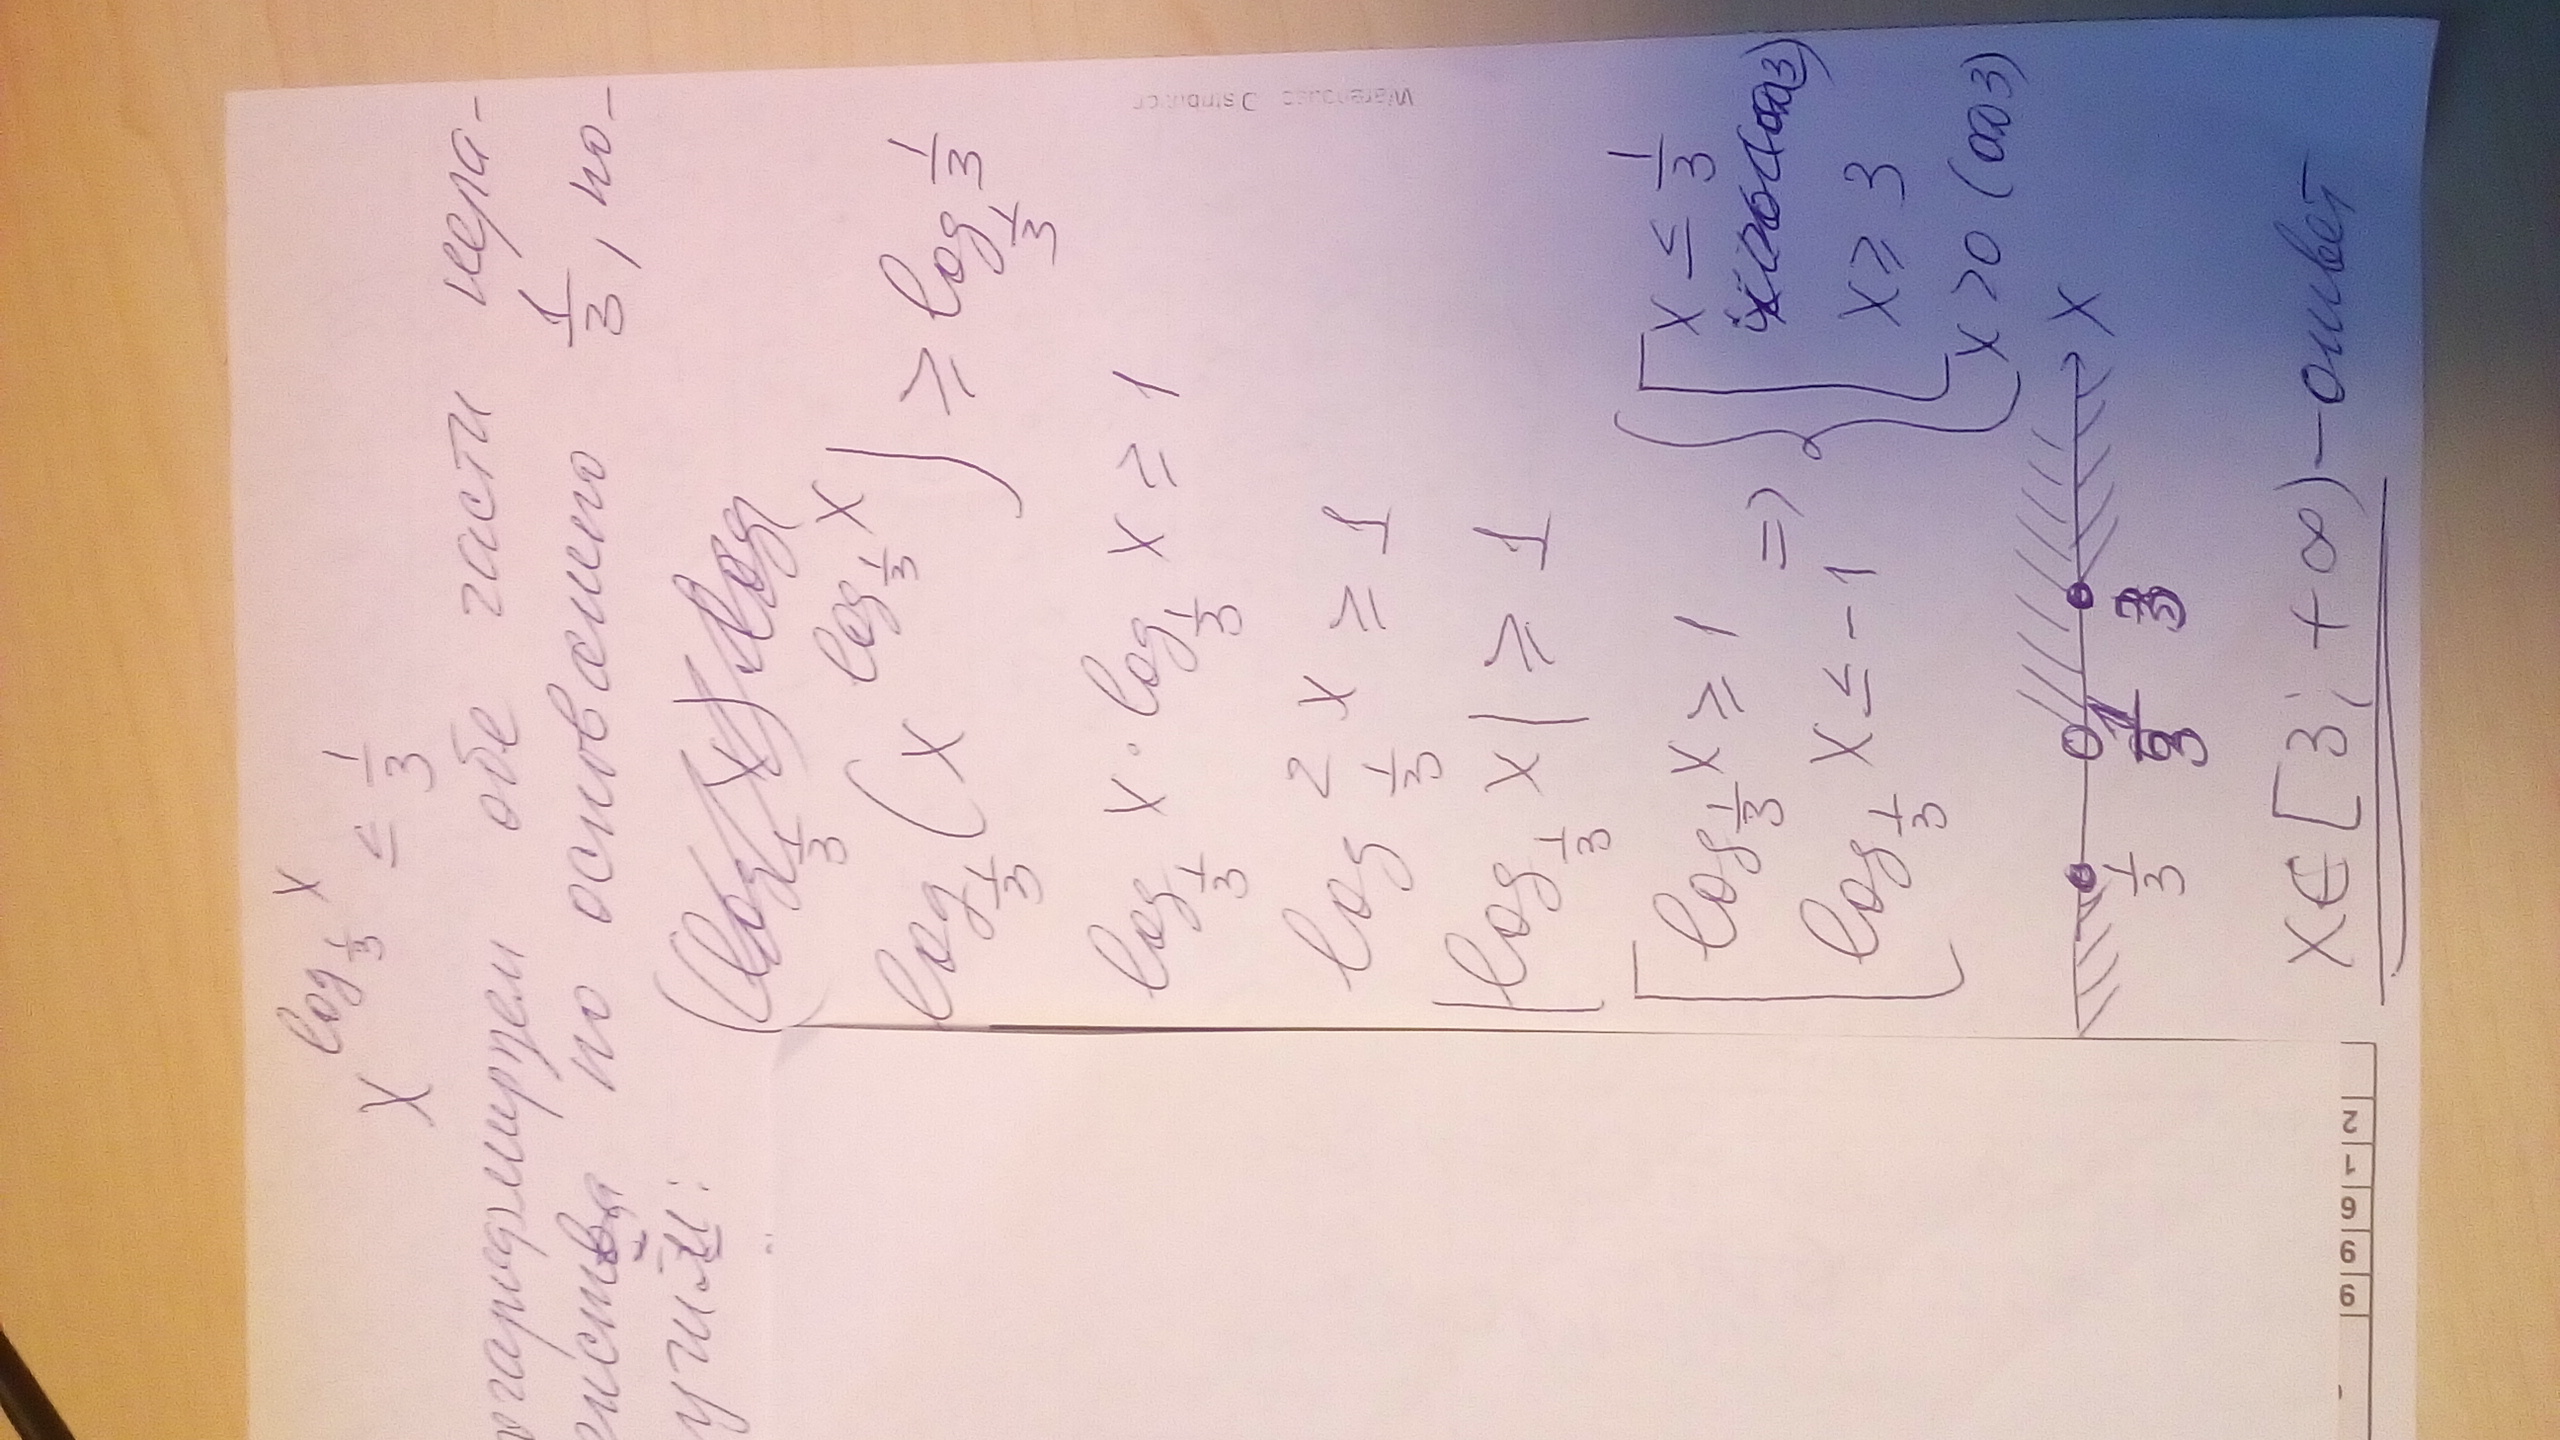 x^{log_{1/3} x} ≤ 1/3
огарифмируем обе части нера-
енства по основанию 1/3, по-
учим:
log_{1/3} (x^{log_{1/3} x}) ≥ log_{1/3} 1/3
log_{1/3} x · log_{1/3} x ≥ 1
log²_{1/3} x ≥ 1
|log_{1/3} x| ≥ 1
[ log_{1/3} x ≥ 1 ⇒ { [ x ≤ 1/3
log_{1/3} x ≤ -1 x ≥ 3
x > 0 (ОДЗ)
1/3 3 x
x ∈ [3; +∞) - ответ
Warehouse Distributor
6 9 9 1 2